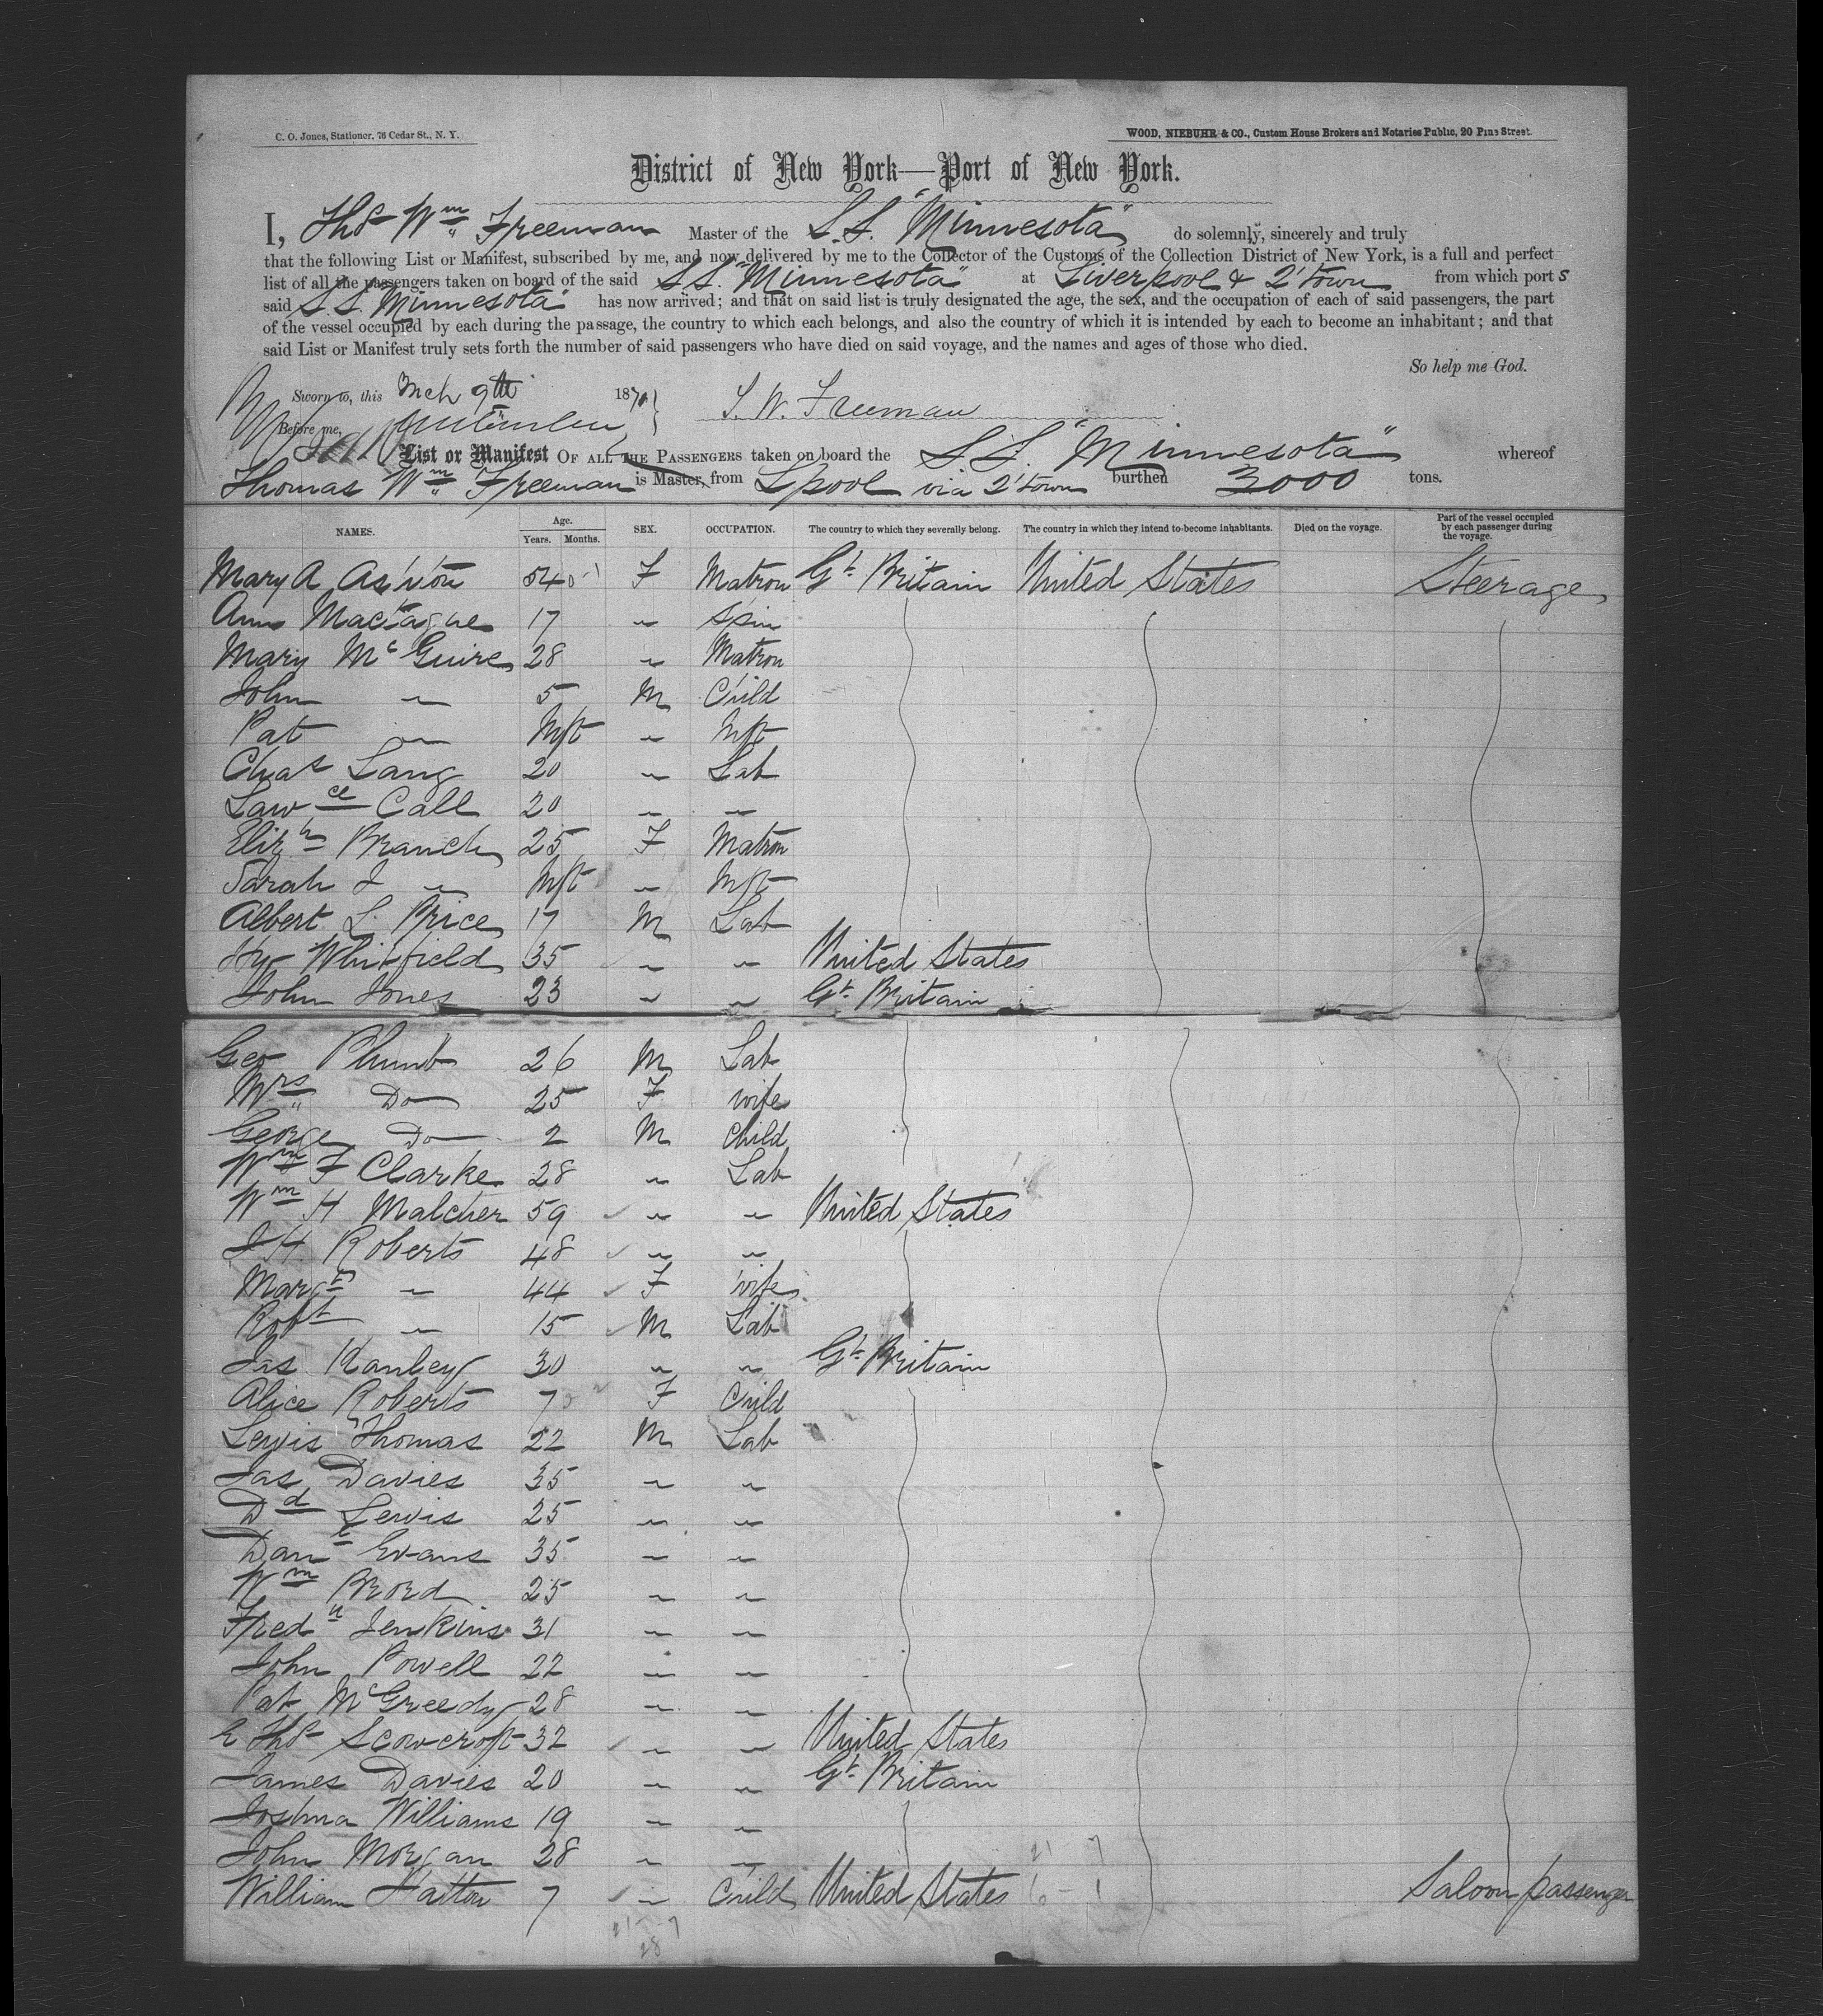 C. O. Jones, Stationer, 76 Cedar St., N. Y.
WOOD, NIEBUHR & CO., Custom House Brokers and Notaries Public, 20 Pine Street.
District of New York—Port of New York.
I, Thos Wm Freeman Master of the S.S. "Minnesota" do solemnly, sincerely and truly
that the following List or Manifest, subscribed by me, and now delivered by me to the Collector of the Customs of the Collection District of New York, is a full and perfect
list of all the passengers taken on board of the said S.S. "Minnesota" at Liverpool & Q'town from which port s
said S.S. "Minnesota" has now arrived; and that on said list is truly designated the age, the sex, and the occupation of each of said passengers, the part
of the vessel occupied by each during the passage, the country to which each belongs, and also the country of which it is intended by each to become an inhabitant; and that
said List or Manifest truly sets forth the number of said passengers who have died on said voyage, and the names and ages of those who died.
So help me God.
Sworn to, this Mch 9th 1870 } T. W. Freeman
Before me,
List or Manifest OF ALL THE PASSENGERS taken on board the S.S. "Minnesota" whereof
Thomas Wm Freeman is Master, from Lpool via Q'town burthen 3000 tons.
NAMES. Age. Years. Months. SEX. OCCUPATION. The country to which they severally belong. The country in which they intend to become inhabitants. Died on the voyage. Part of the vessel occupied by each passenger during the voyage.
Mary A Ashton 54 F Matron Gt Britain United States Steerage
Ann Mactague 17 " Spin
Mary McGuire 28 " Matron
John " 5 M Child
Pat " Inft " Inft
Chas Lang 20 " Lab
Lawce Call 20 " "
Elizh Branch 25 F Matron
Sarah J " Inft " Inft
Albert L. Price 17 M Lab
Hy Whitfield 35 " " United States
John Jones 23 " " Gt Britain
Geo Plumb 26 M Lab
Mrs Do 25 F wife
George Do 2 M Child
Wm F Clarke 28 " Lab
Wm H Malcher 59 " " United States
J H Roberts 48 " "
Margt " 44 F wife
Robt " 15 M Lab
Jas Hanley 30 " " Gt Britain
Alice Roberts 7 F Child
Lewis Thomas 22 M Lab
Jas Davies 35 " "
Dd Lewis 25 " "
Danl Evans 35 " "
Wm Brord 25 " "
Fredk Jenkins 31 " "
John Powell 22 " "
Pat McGreedy 28 " "
E Thos Scowcroft 32 " " United States
James Davies 20 " " Gt Britain
Joshua Williams 19 " "
John Morgan 28 " "
William Hatton 7 " Child United States Saloon passenger